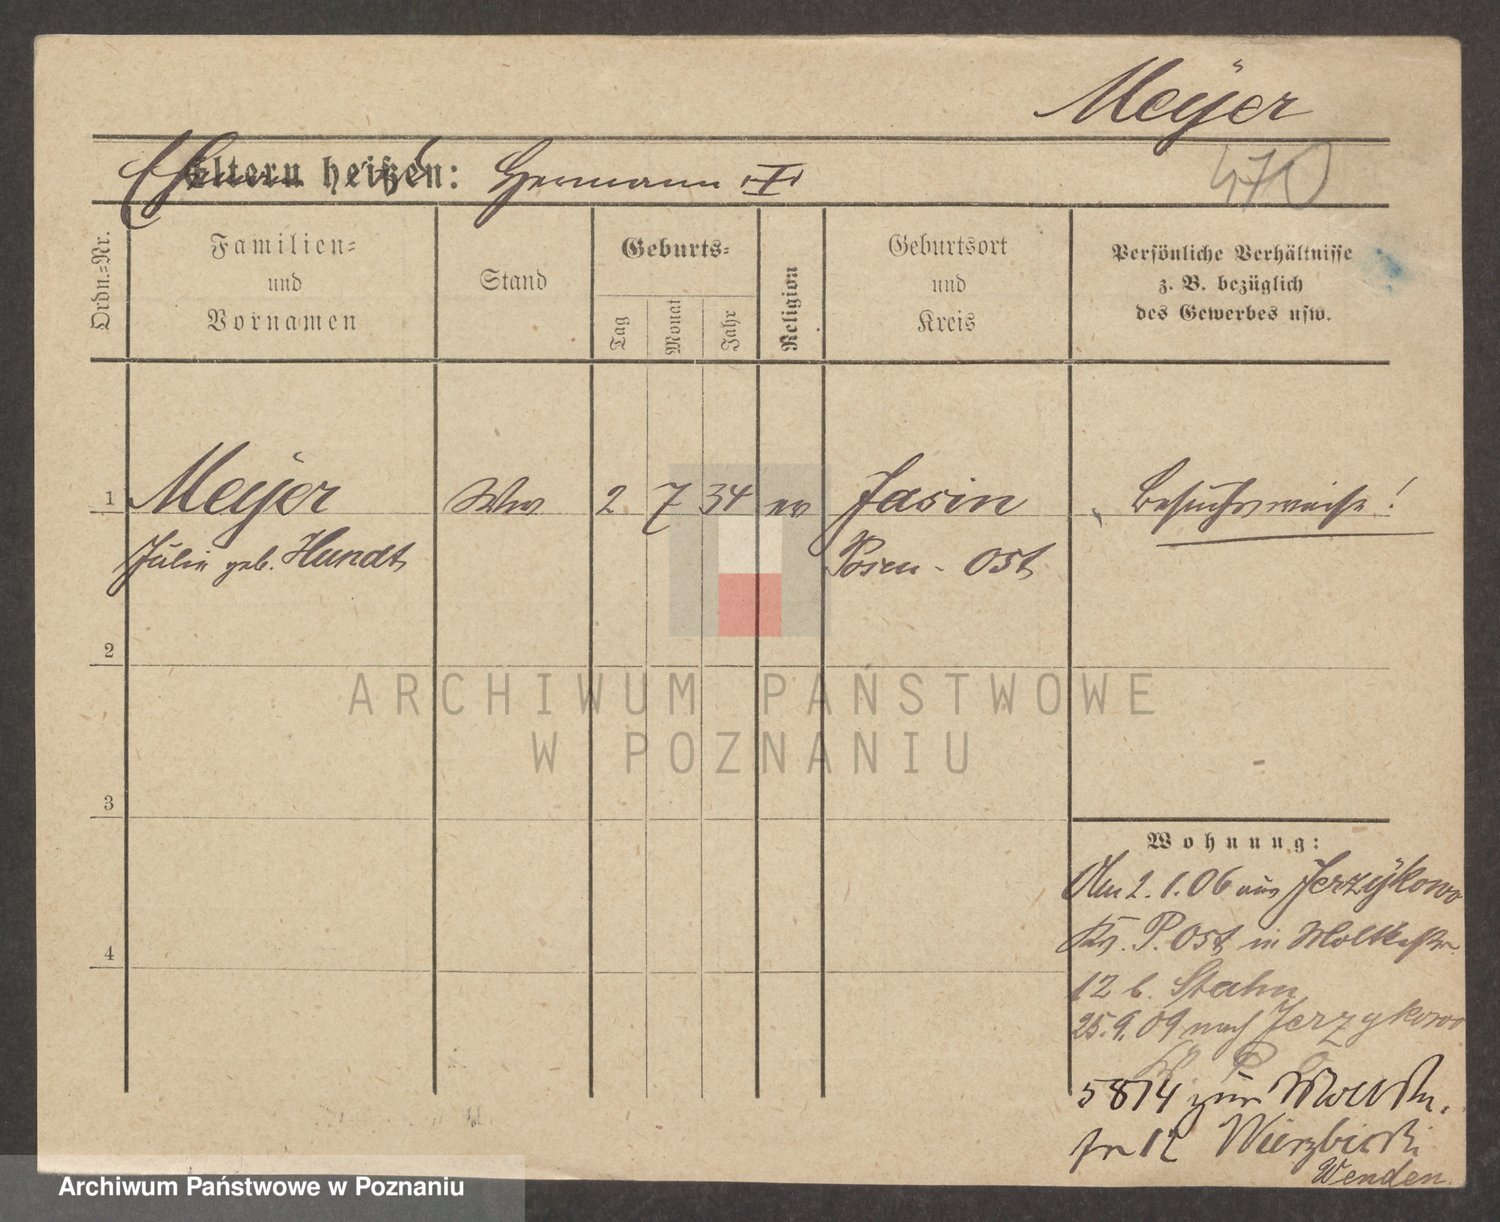 Meÿer
470
Eltern heißen: Hermann I
Ordn.=Nr.
Familien=
und
Vornamen
Stand
Geburts=
Tag
Monat
Jahr
Religion
Geburtsort
und
Kreis
Persönliche Verhältnisse
z. B. bezüglich
des Gewerbes usw.
1 Meÿer Ww 2 7 34 ev Jasin Besuchsweise!
Julie geb. Hundt Posen - Ost
2
3
4
Wohnung:
Am 2.1.06 aus Jerzÿkowo
Krs. P. Ost in Moltkestr.
12 b. Stahn
25.9.09 nach Jerzykowo
5814 zur Moltkestr.
12
Wenden
ARCHIWUM PAŃSTWOWE
W POZNANIU
Archiwum Państwowe w Poznaniu